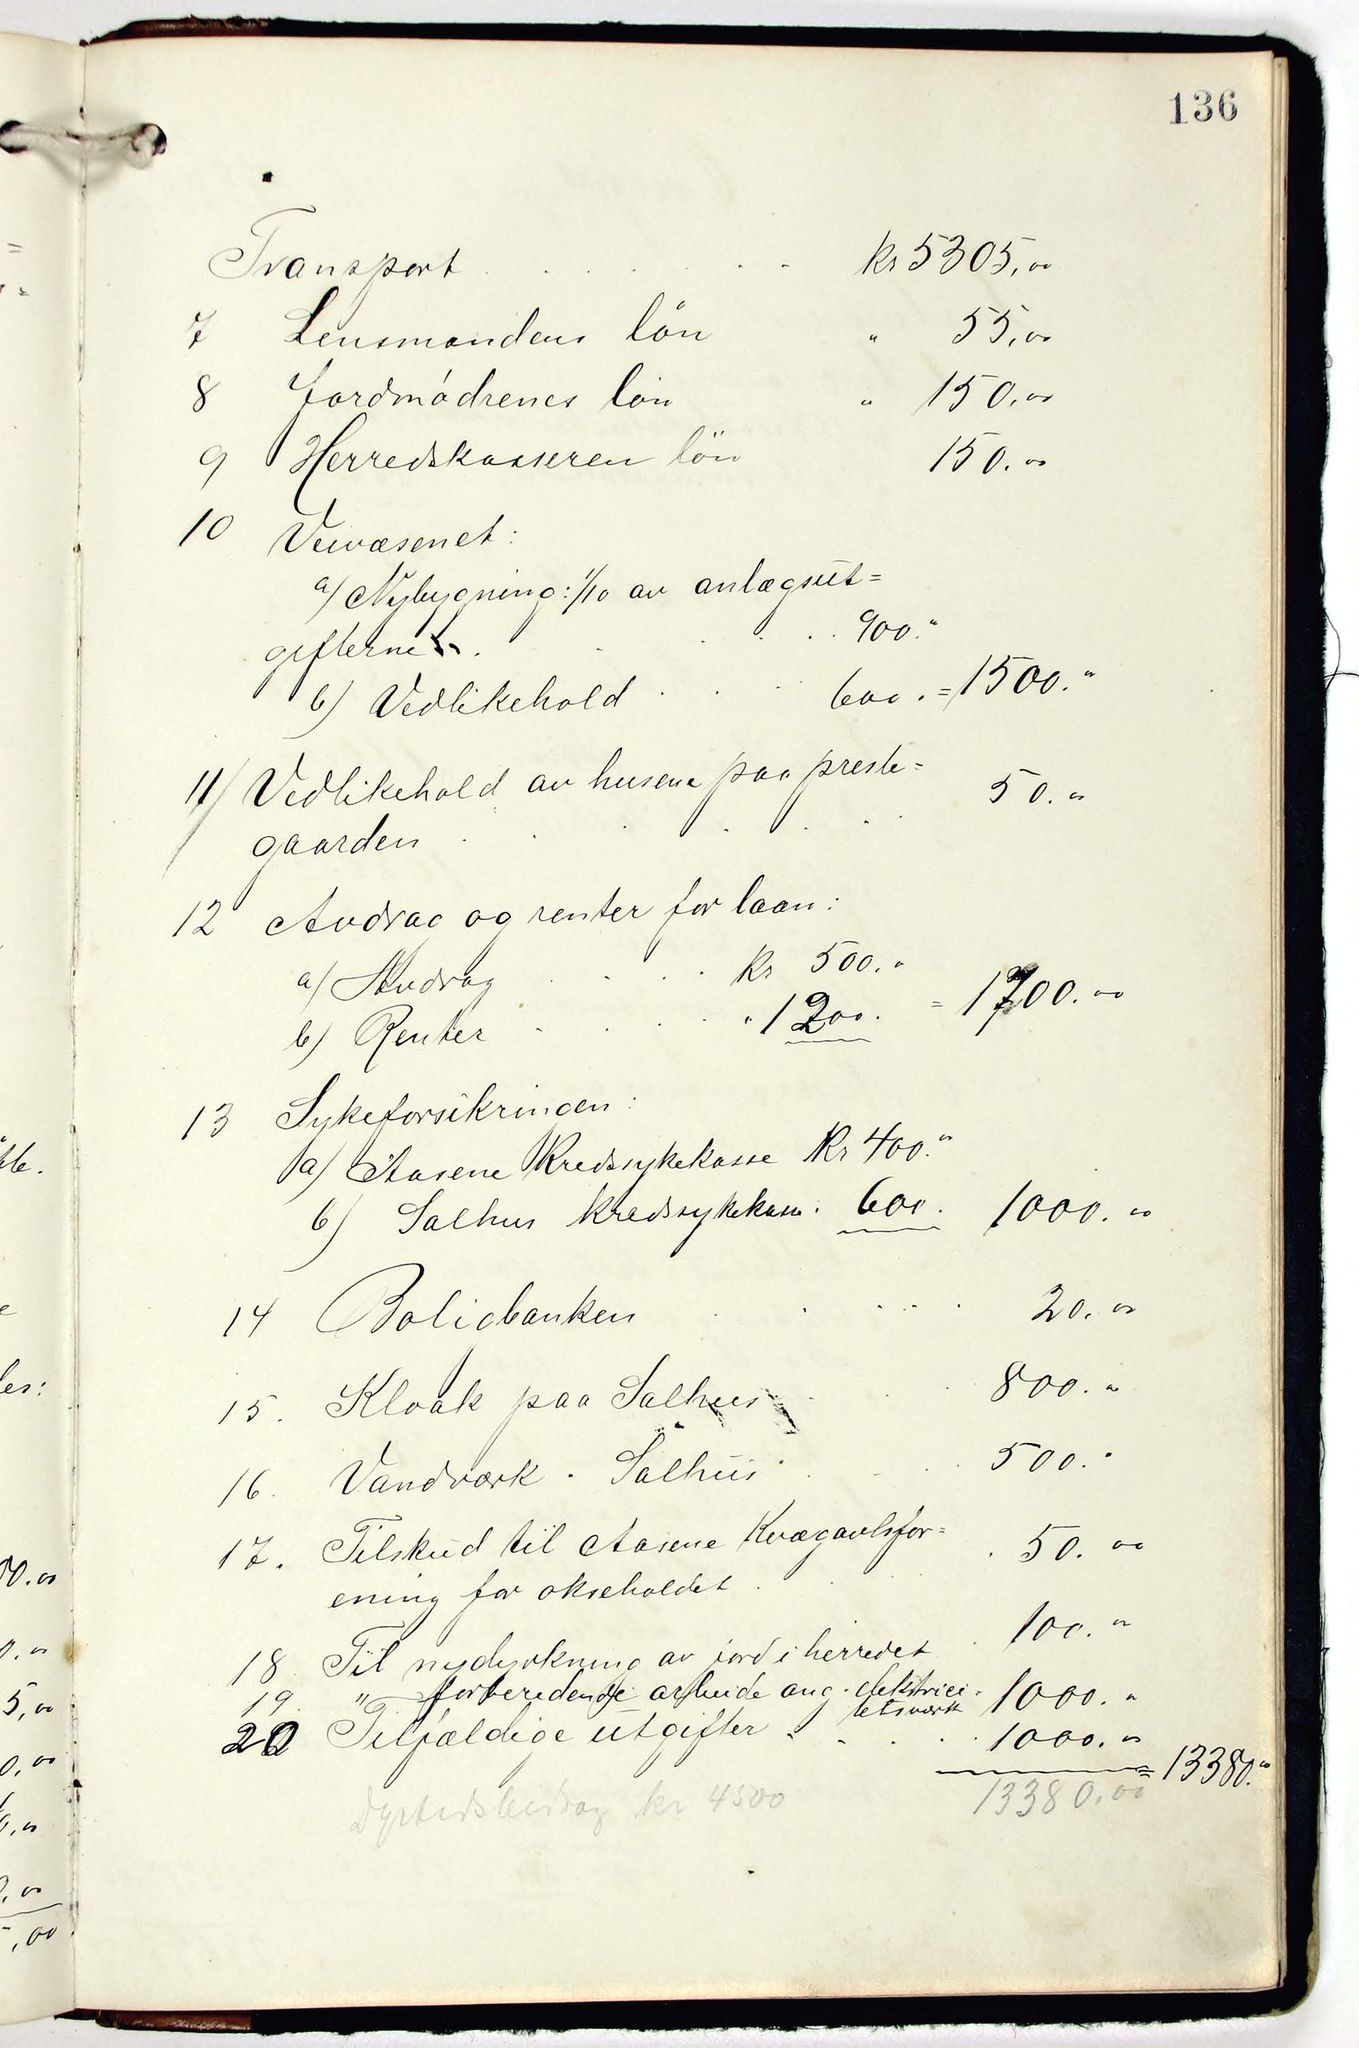 136
Transport . . . . . . . kr 5305,00
7 Lensmandens lön " 55,00
8 Jordmödrenes lön " 150,00
9 Herredskasseren lön 150.00
10 Veivæsenet:
a/ Nybygning: 1/10 av anlægsut=
gifterne . . . . 900."
b) Vedlikehold . . . 600. = 1500."
11/ Vedlikehold av husene paa preste= 50."
gaarden . . . . . .
12 Avdrag og renter for laan:
a/ Avdrag . . . kr 500."
b) Renter . . . . " 1200. = 1700.00
13 Sykeforsikringen:
a) Aasene Kredssykekasse Kr 400."
b) Salhus kredssykekasse. 600. 1000.00
14 Boligbanken . . . . . 20.00
15. Kloak paa Salhus . . 800."
16. Vandværk - Salhus . . . 500."
17. Tilskud til Aasene Kvægavlsfor= . 50.00
ening for okseholdet . . .
18 Til nydyrkning av jord i herredet . 100."
19. " forberedende arbeide ang. elektrici- 1000."
tetsværk
20 Tilfældige utgifter . . . . . 1000.00
= 13380."
Dyrtidsbidrag kr 4500 13380.00